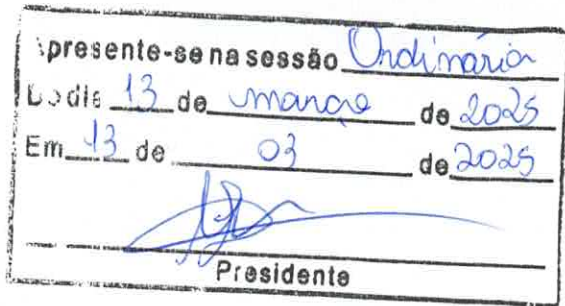 presente-se na sessão Ordinária
dia 13 de março de 2025
Em 13 de 03 de 2025
Presidente